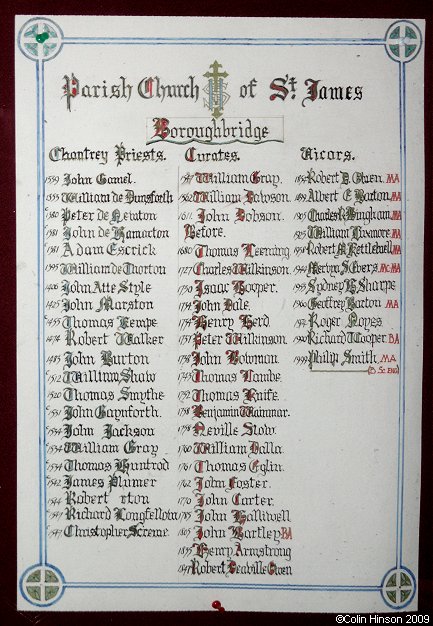 Parish Church of St. James
Boroughbridge
Chantrey Priests.
John Gamel.
William de Dunsforth
1380 Peter de Newton
1381 John de Hamarton
c1381 Adam Escrick
1395 William de Thorton
1400 John Atte Style
1425 John Marston
c1455 Thomas Kempe
1474 Robert Walker
1485 John Burton
c1512 William Shaw
1520 Thomas Smythe
John Gaynforth.
1534 John Jackson
1534 William Gray
Thomas Huntrod
1542 James Plumer
1544 Robert rton
c1547 Richard Longfellow
c1547 Christopher
Curates.
William Gray.
1562 William Dawson.
1611. John Dobson.
Before.
1680 Thomas Leeming.
1727 Charles Wilkinson.
1750 Isaac Hooper.
1754 John Dale.
Henry Herd.
1757 Peter Wilkinson.
1758 John Bowman.
Thomas Lambe.
1752 Thomas Knife.
1758 Benjamin
1758 Neville Stow.
1760 William Dalla.
1761 Thomas Eglin.
1762 John Foster.
1770 John Carter.
1785 John Halliwell
1803 John Hartley BA
1835 Henry Armstrong
1847 Robert Owen
Vicars.
Robert D. Owen. MA
1899 Albert E Barton, MA
1905 Charles R. Bingham MA
1925 William MA
1938 Robert M. Kettlewell MA
1949 Mervyn S. Evers, MC. MA
1955 Sydney B. Sharpe
1960 Geoffrey Barton MA
1974 Roger Noyes
1990 Richard W Cooper BA
1999 Philip Smith, MA
(B. Sc. Eng)
©Colin Hinson 2009